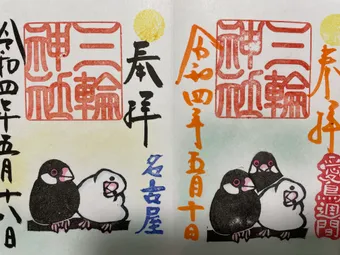 奉拝
名古屋
三輪
神社
令和四年五月十八日
奉拝
愛鳥週間
三輪
神社
令和四年五月十日